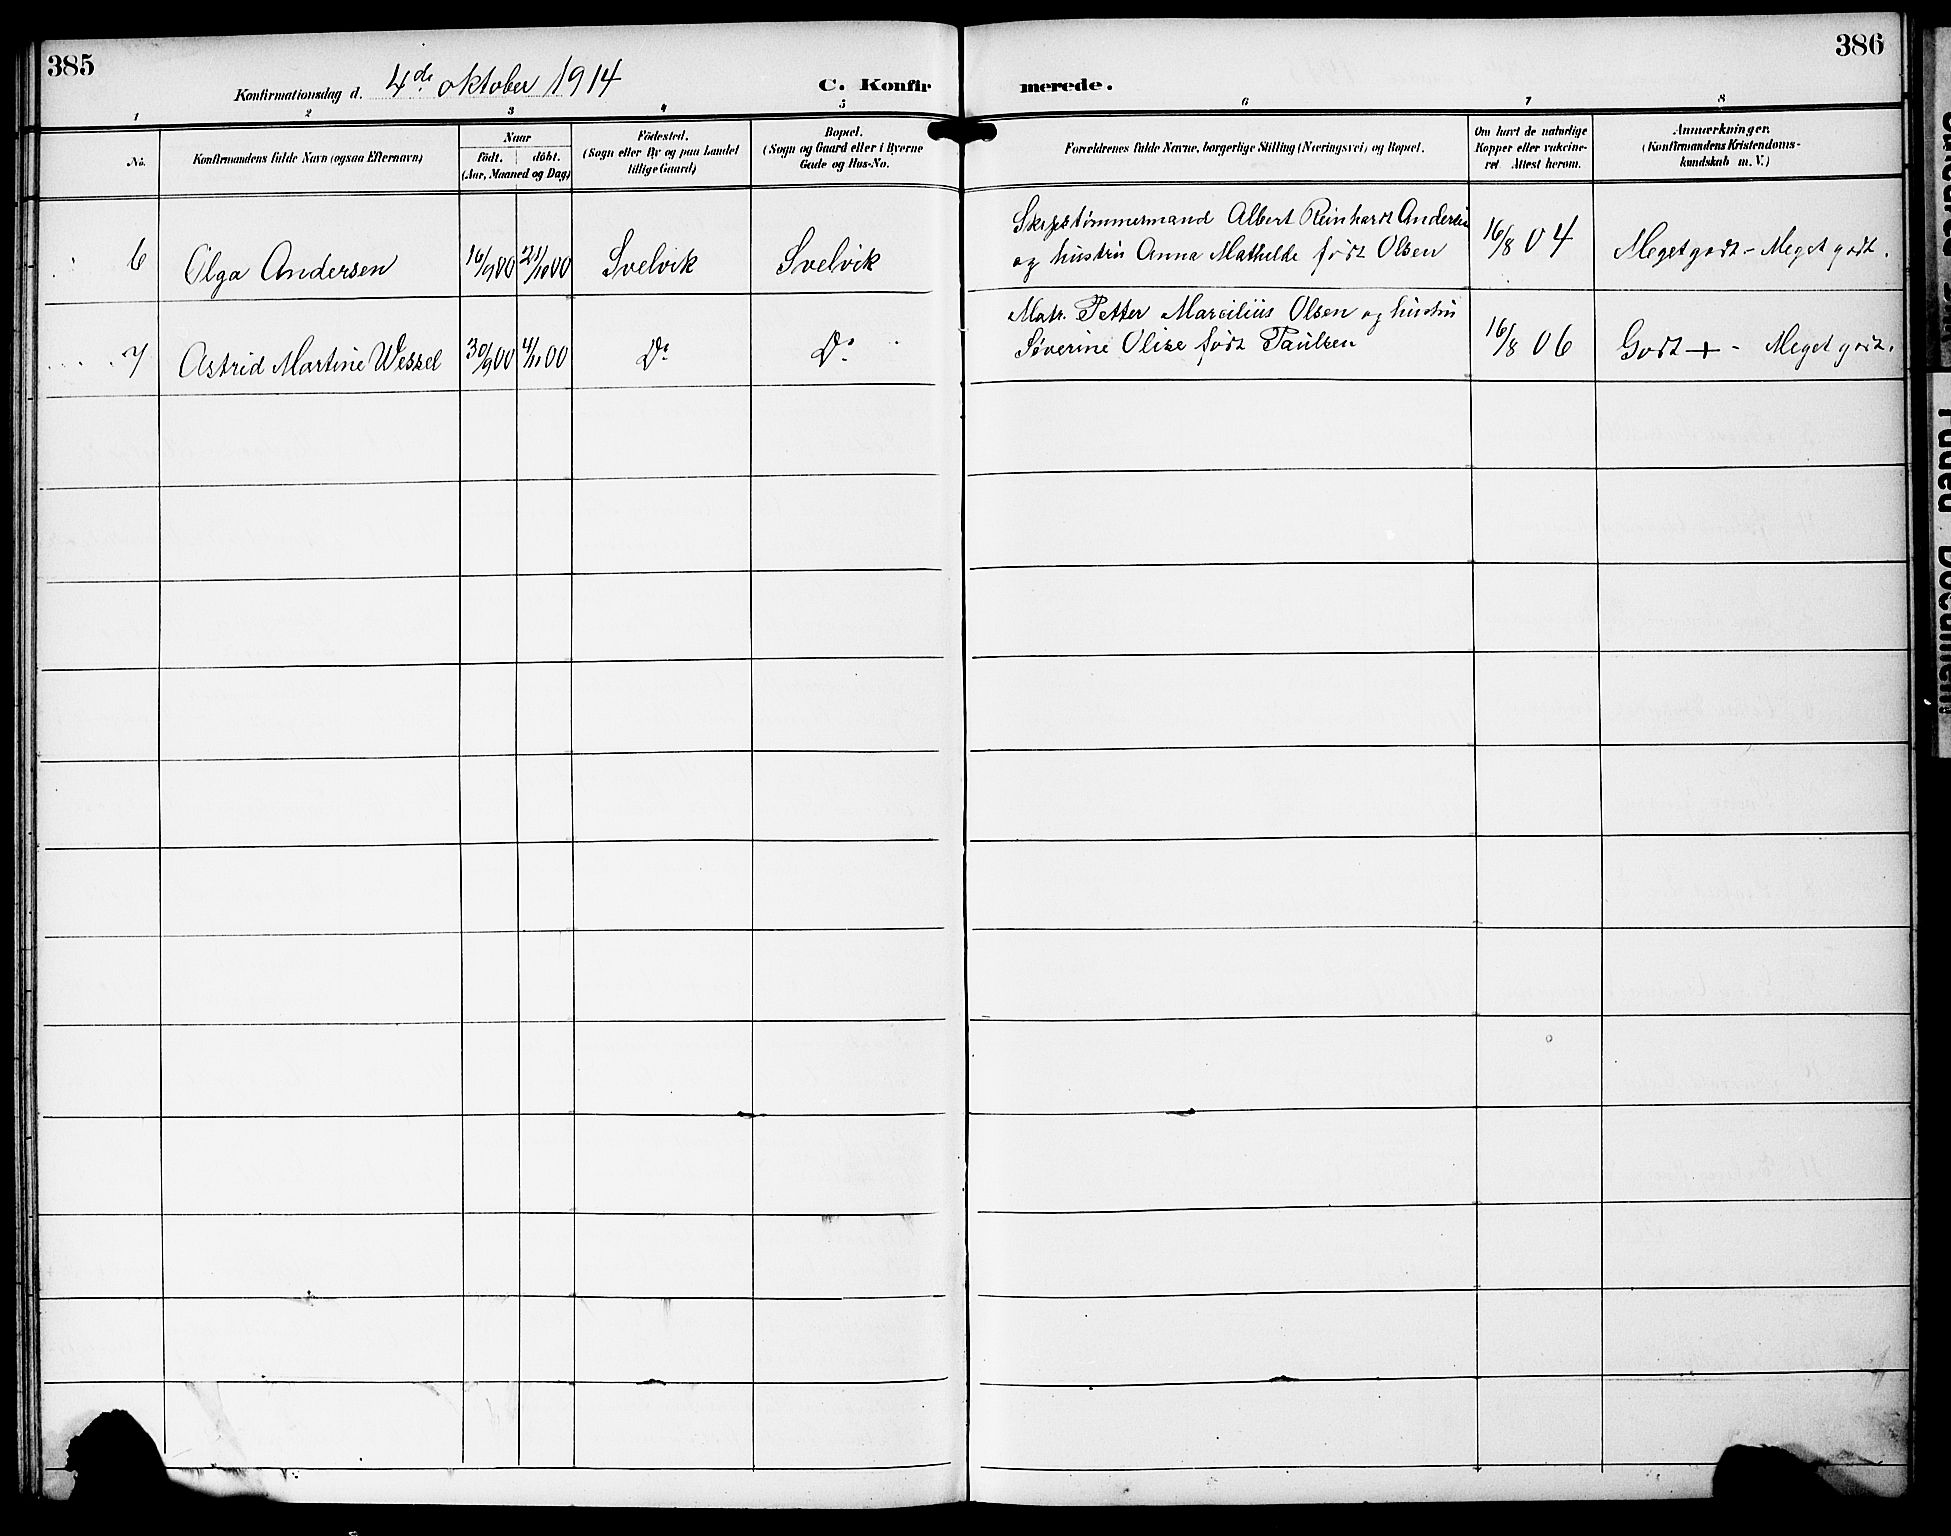 385
Konfirmationsdag d. 4de oktober 1914
C. Konfir
merede.
386
1
2
3
4
5
6
7
8
No.
Konfirmandens fulde Navn (ogsaa Efternavn)
Naar
født.
døbt.
(Aar, Maaned og Dag)
Fødested.
(Sogn eller By og paa Landet
tillige Gaard)
Bopæl.
(Sogn og Gaard eller i Byerne
Gade og Hus-No.
Forældrenes fulde Navne, borgerlige Stilling (Næringsvei) og Bopæl.
Om havt de naturlige
Kopper eller vakcine-
ret Attest herom.
Anmærkninger.
(Konfirmandens Kristendoms-
kundskab m. V.)
6
Olga Andersen
16/9 00
21/10 00
Svelvik
Svelvik
Skipstømmermand Albert Reinhardt Andersen
og hustru Anna Mathilde født Olsen
16/8 04
Meget godt - Meget godt.
7
Astrid Martine Wessel
30/9 00
4/11 00
Do
Do
Matr. Petter Marcilius Olsen og hustru
Søverine Olise født Paulsen
16/8 06
Godt + - Meget godt.
Faded Document